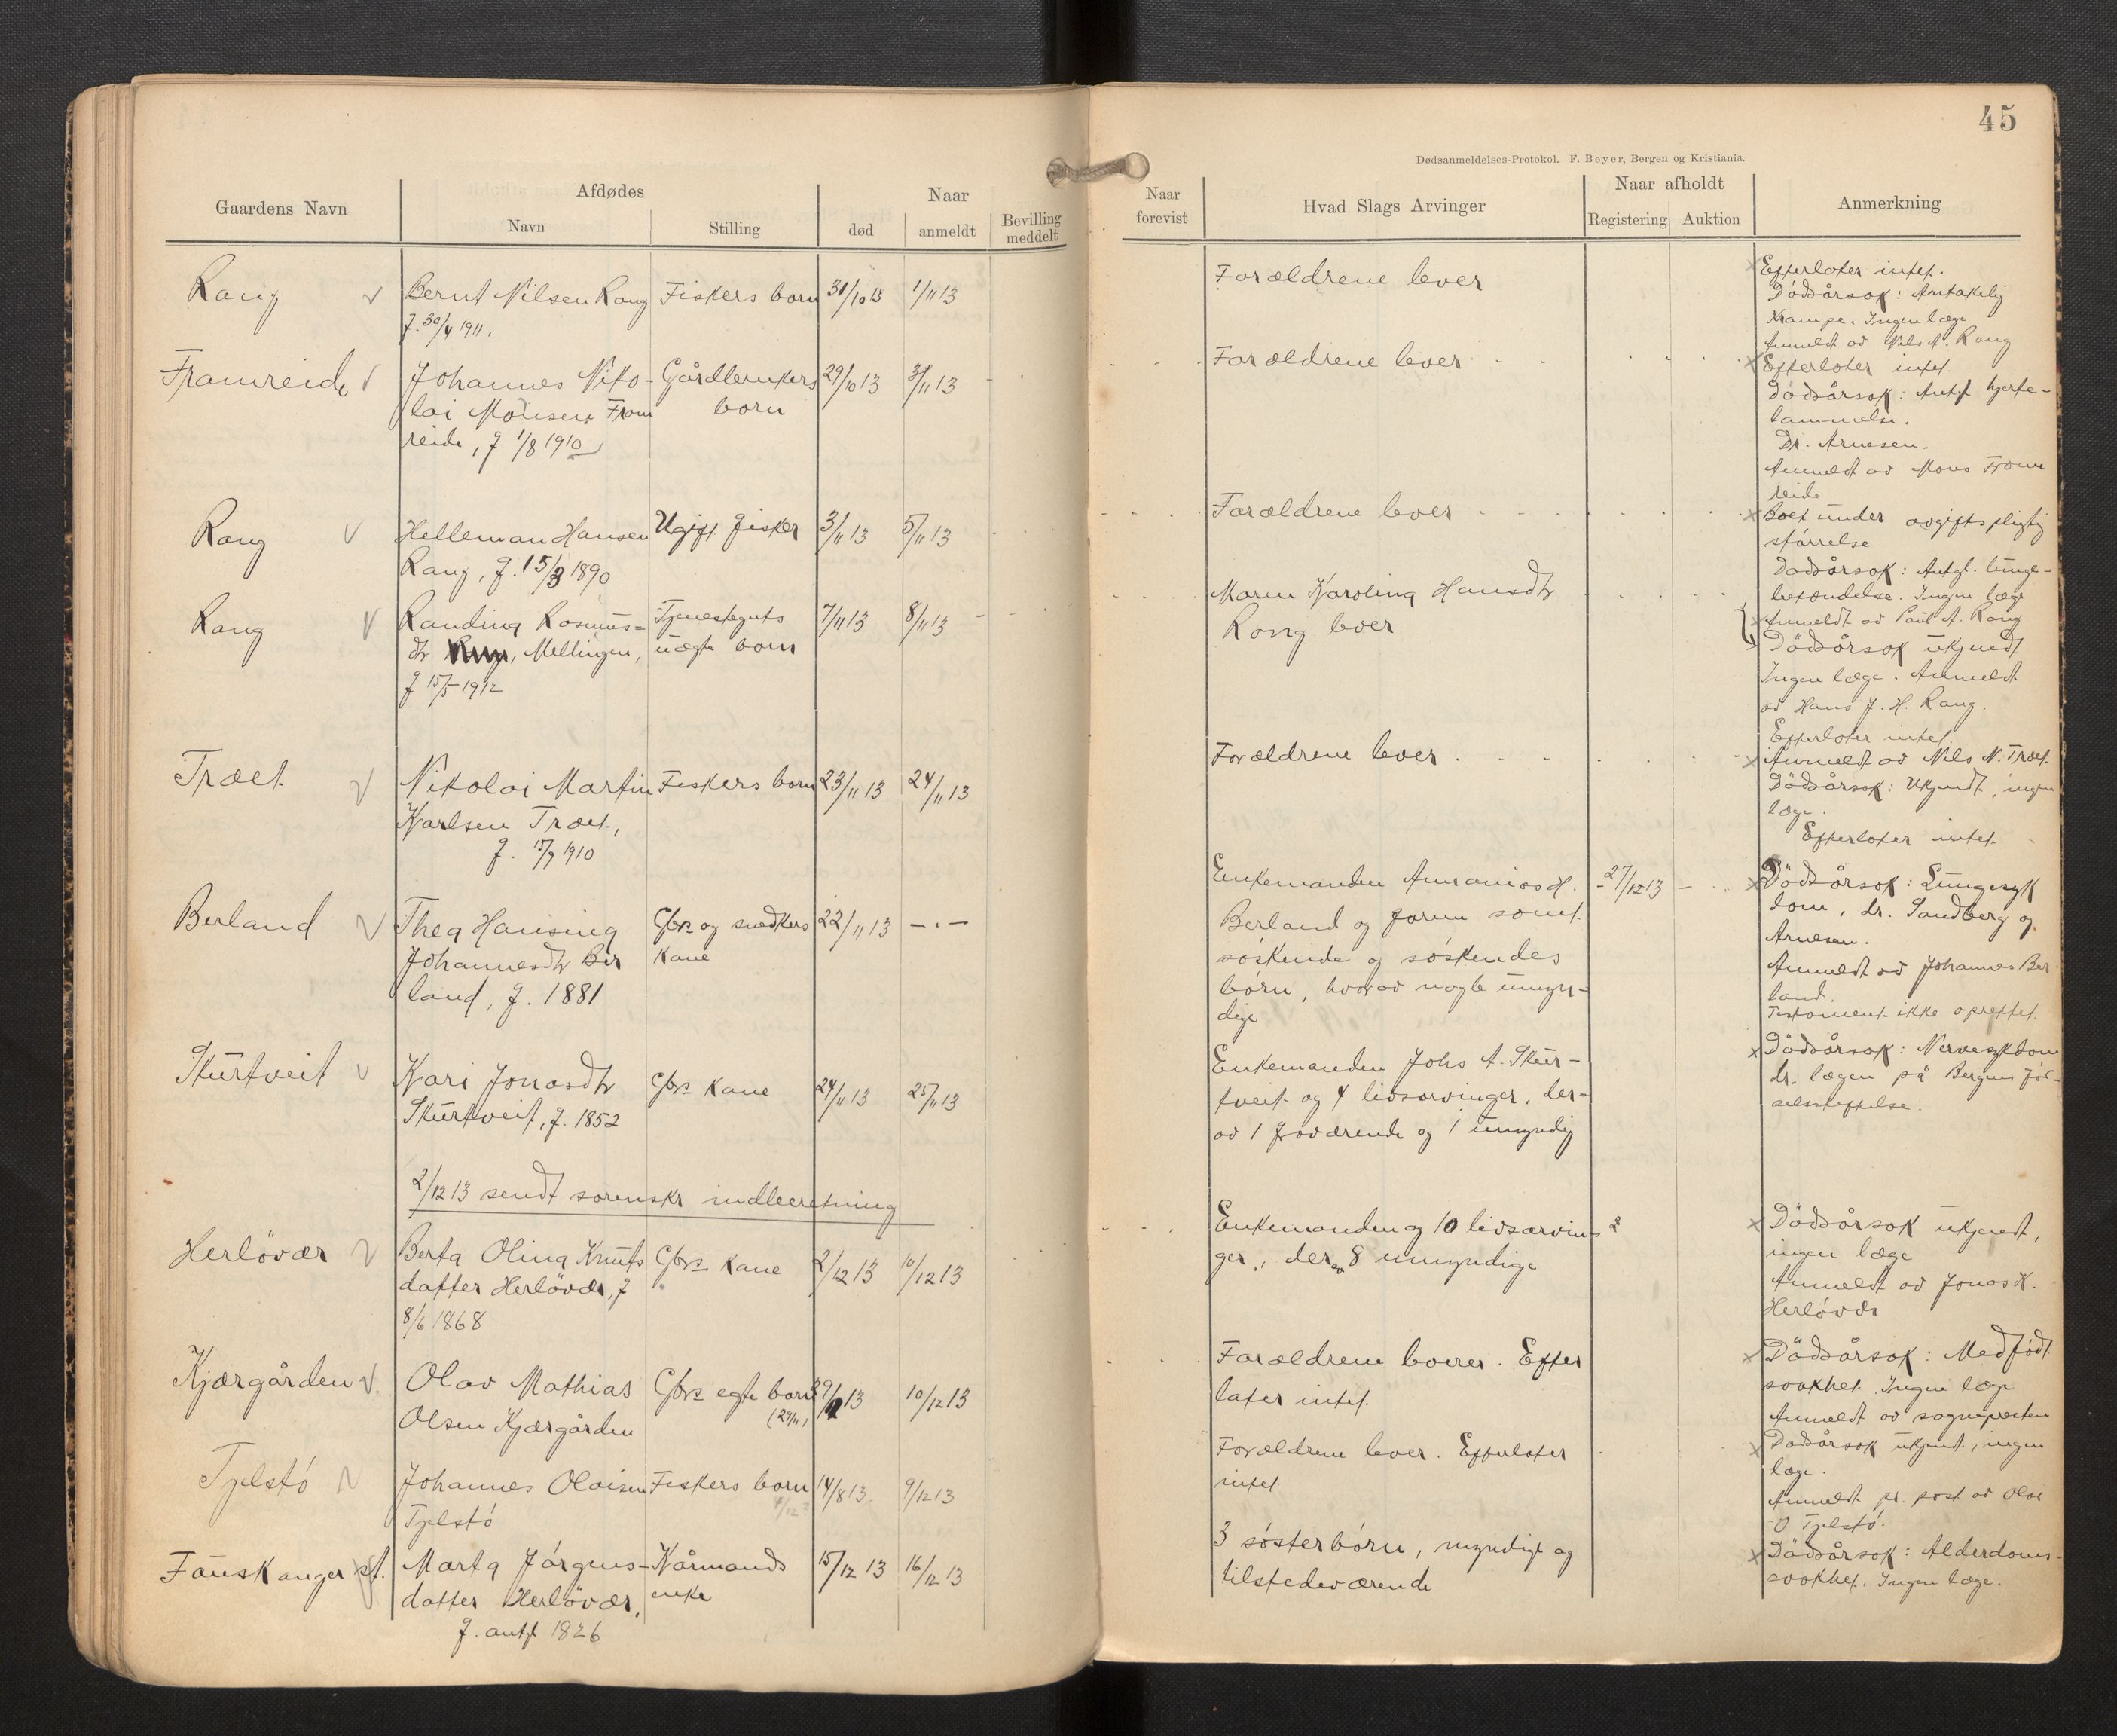 45
Dødsanmeldelses-Protokol. F. Beyer, Bergen og Kristiania.
Gaardens Navn
Afdødes
Navn
Stilling
Naar
død
anmeldt
Bevilling
meddelt
Naar
forevist
Hvad Slags Arvinger
Naar afholdt
Registering
Auktion
Anmerkning
Rong
Bernt Nilsen Rong
f. 30/4 1911.
Fiskers barn
31/10 13
1/11 13
Forældrene lever
Efterlater intet.
Dödsårsak: Antakelig
Krampe. Ingen læge
Anmeldt av Nils A. Rong
Framreide
Johannes Niko-
lai Monsen Fram
reide, f 1/8 1910
Gårdbrukers
barn
29/10 13
3/11 13
Forældrene lever
Efterlater intet.
Dödsårsak: Antgl hjerte-
lammelse.
Dr. Arnesen.
Anmeldt av Mons Fram
reide
Rong
Helleman Hansen
Rong, f. 15/3 1890
Ugift fisker
3/11 13
5/11 13
Forældrene lever
Boet under avgiftspligtig
störrelse
Dödsårsak: Antgl. lunge-
betændelse. Ingen læge
Anmeldt av Paul A. Rong
Rong
Randina Rasmus-
dtr , Mellingen,
f 15/5 1912
Tjenesteguts
uægte barn
7/11 13
8/11 13
Maren Karolina Hansdtr
Rong lever
Dödsårsak ukjendt
Ingen læge. Anmeldt
av Hans J. H. Rong.
Efterlater intet.
Træet
Nikolai Martin
Karlsen Træet,
f. 15/9 1910
Fiskers barn
23/11 13
24/11 13
Forældrene lever
Anmeldt av Nils N. Træet
Dödsårsak: Ukjendt, ingen
læge.
Efterlater intet.
Berland
Thea Hansina
Johannesdtr Ber
land, f. 1881
Gbrs og snedkers
kone
22/11 13
-.-
Enkemanden Annanias H.
Berland og forøvr samt.
søskende og søskendes
börn, hvorav nogle umyn-
dige
27/12 13
Dödsårsak: Lungesyk
dom, dr. Sandberg og
Arnesen.
Anmeldt av Johannes Ber
land.
Testament ikke oprettet.
Skurtveit
Kari Jonasdtr
Skurtveit, f. 1852
Gbrs kone
24/11 13
25/11 13
Enkemanden Johs A. Skur-
tveit og 4 livsarvinger, der-
av 1 fraværende og 1 umyndig
Dödsårsak: Nervesykdom
dr. lægen på Bergens föd-
selsstiftelse.
2/12 13 sendt sorenskr indberetning
Herlövær
Berta Olina Knuts
datter Herlövær, f
8/6 1868
Gbrs kone
2/12 13
10/12 13
Enkemanden og 10 livsarvin-
ger, derav 8 umyndige
2
Dödsårsak ukjendt,
ingen læge
Anmeldt av Jonas K.
Herlövær
Kjærgården
Olav Mathias
Olsen Kjærgården
Gbrs egte barn
(29/11)
29/11 13
10/12 13
Forældrene lever. Efter
later intet.
Dödsårsak: Medfödt
svakhet. Ingen læge
Anmeldt av sognepræsten
Tjelstö
Johannes Olaisen
Tjelstö
Fiskers barn
14/8 13
9/12 13
Forældrene lever. Efterlater
intet.
Dödsårsak ukjent, ingen
læge.
Anmeldt pr. post av Olai
O Tjelstö.
Fauskanger
Marta Jörgens-
datter Herlövær,
f. antgl 1826
Kårmands
enke
15/12 13
16/12 13
3 søsterbörn, myndige og
tilstedeværende
Dödsårsak: Alderdoms-
svakhet. Ingen læge.